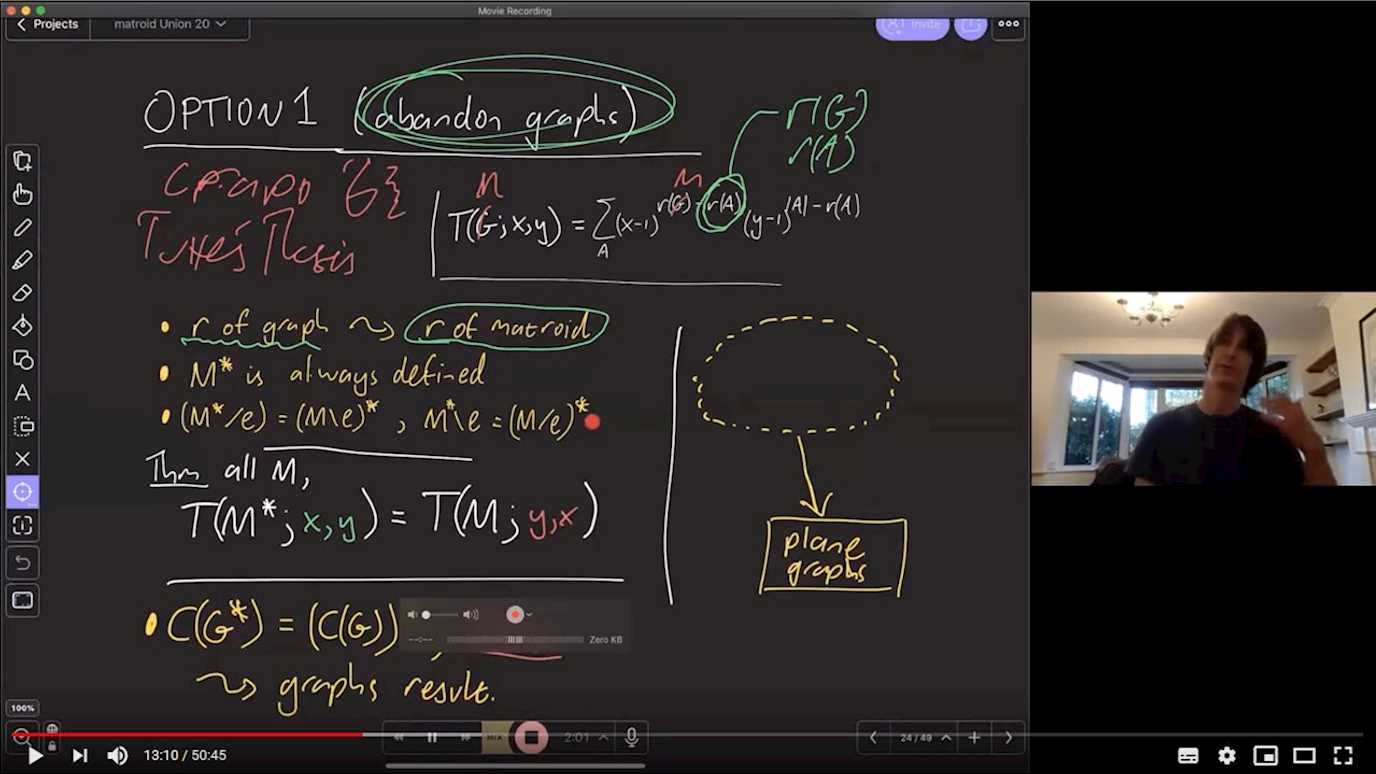 Movie Recording
Projects
matroid Union 20
Invite
OPTION 1 (abandon graphs)
r(G)
r(A)
Crapo '6
Tutte's Thesis
M
M
T(G; x,y) = Σ (x-1)^r(G)-r(A) (y-1)^|A|-r(A)
A
• r of graph ⤳ r of matroid
• M* is always defined
• (M*/e) = (M\e)* , M*\e = (M/e)*
Thm all M,
T(M*; x,y) = T(M; y,x)
plane
graphs
• C(G*) = (C(G))
⤳ graphs result.
--:--
Zero KB
100%
MIX
2:01
24 / 49
13:10 / 50:45